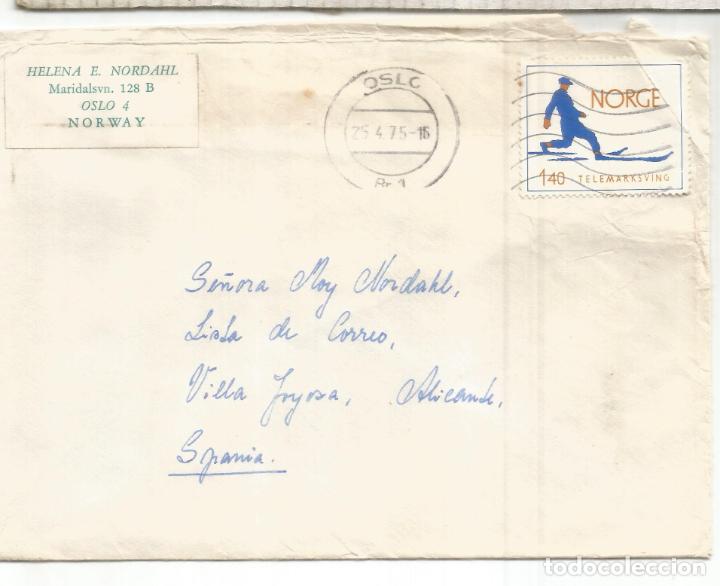 HELENA E. NORDAHL
Maridalsvn. 128 B
OSLO 4
NORWAY
OSLO
25.4.75-16
Br.1
NORGE
140 TELEMARKSVING
Señora Moy Nordahl,
Lista de Correo,
Villa Joyosa, Alicante,
Spania.
todocoleccion